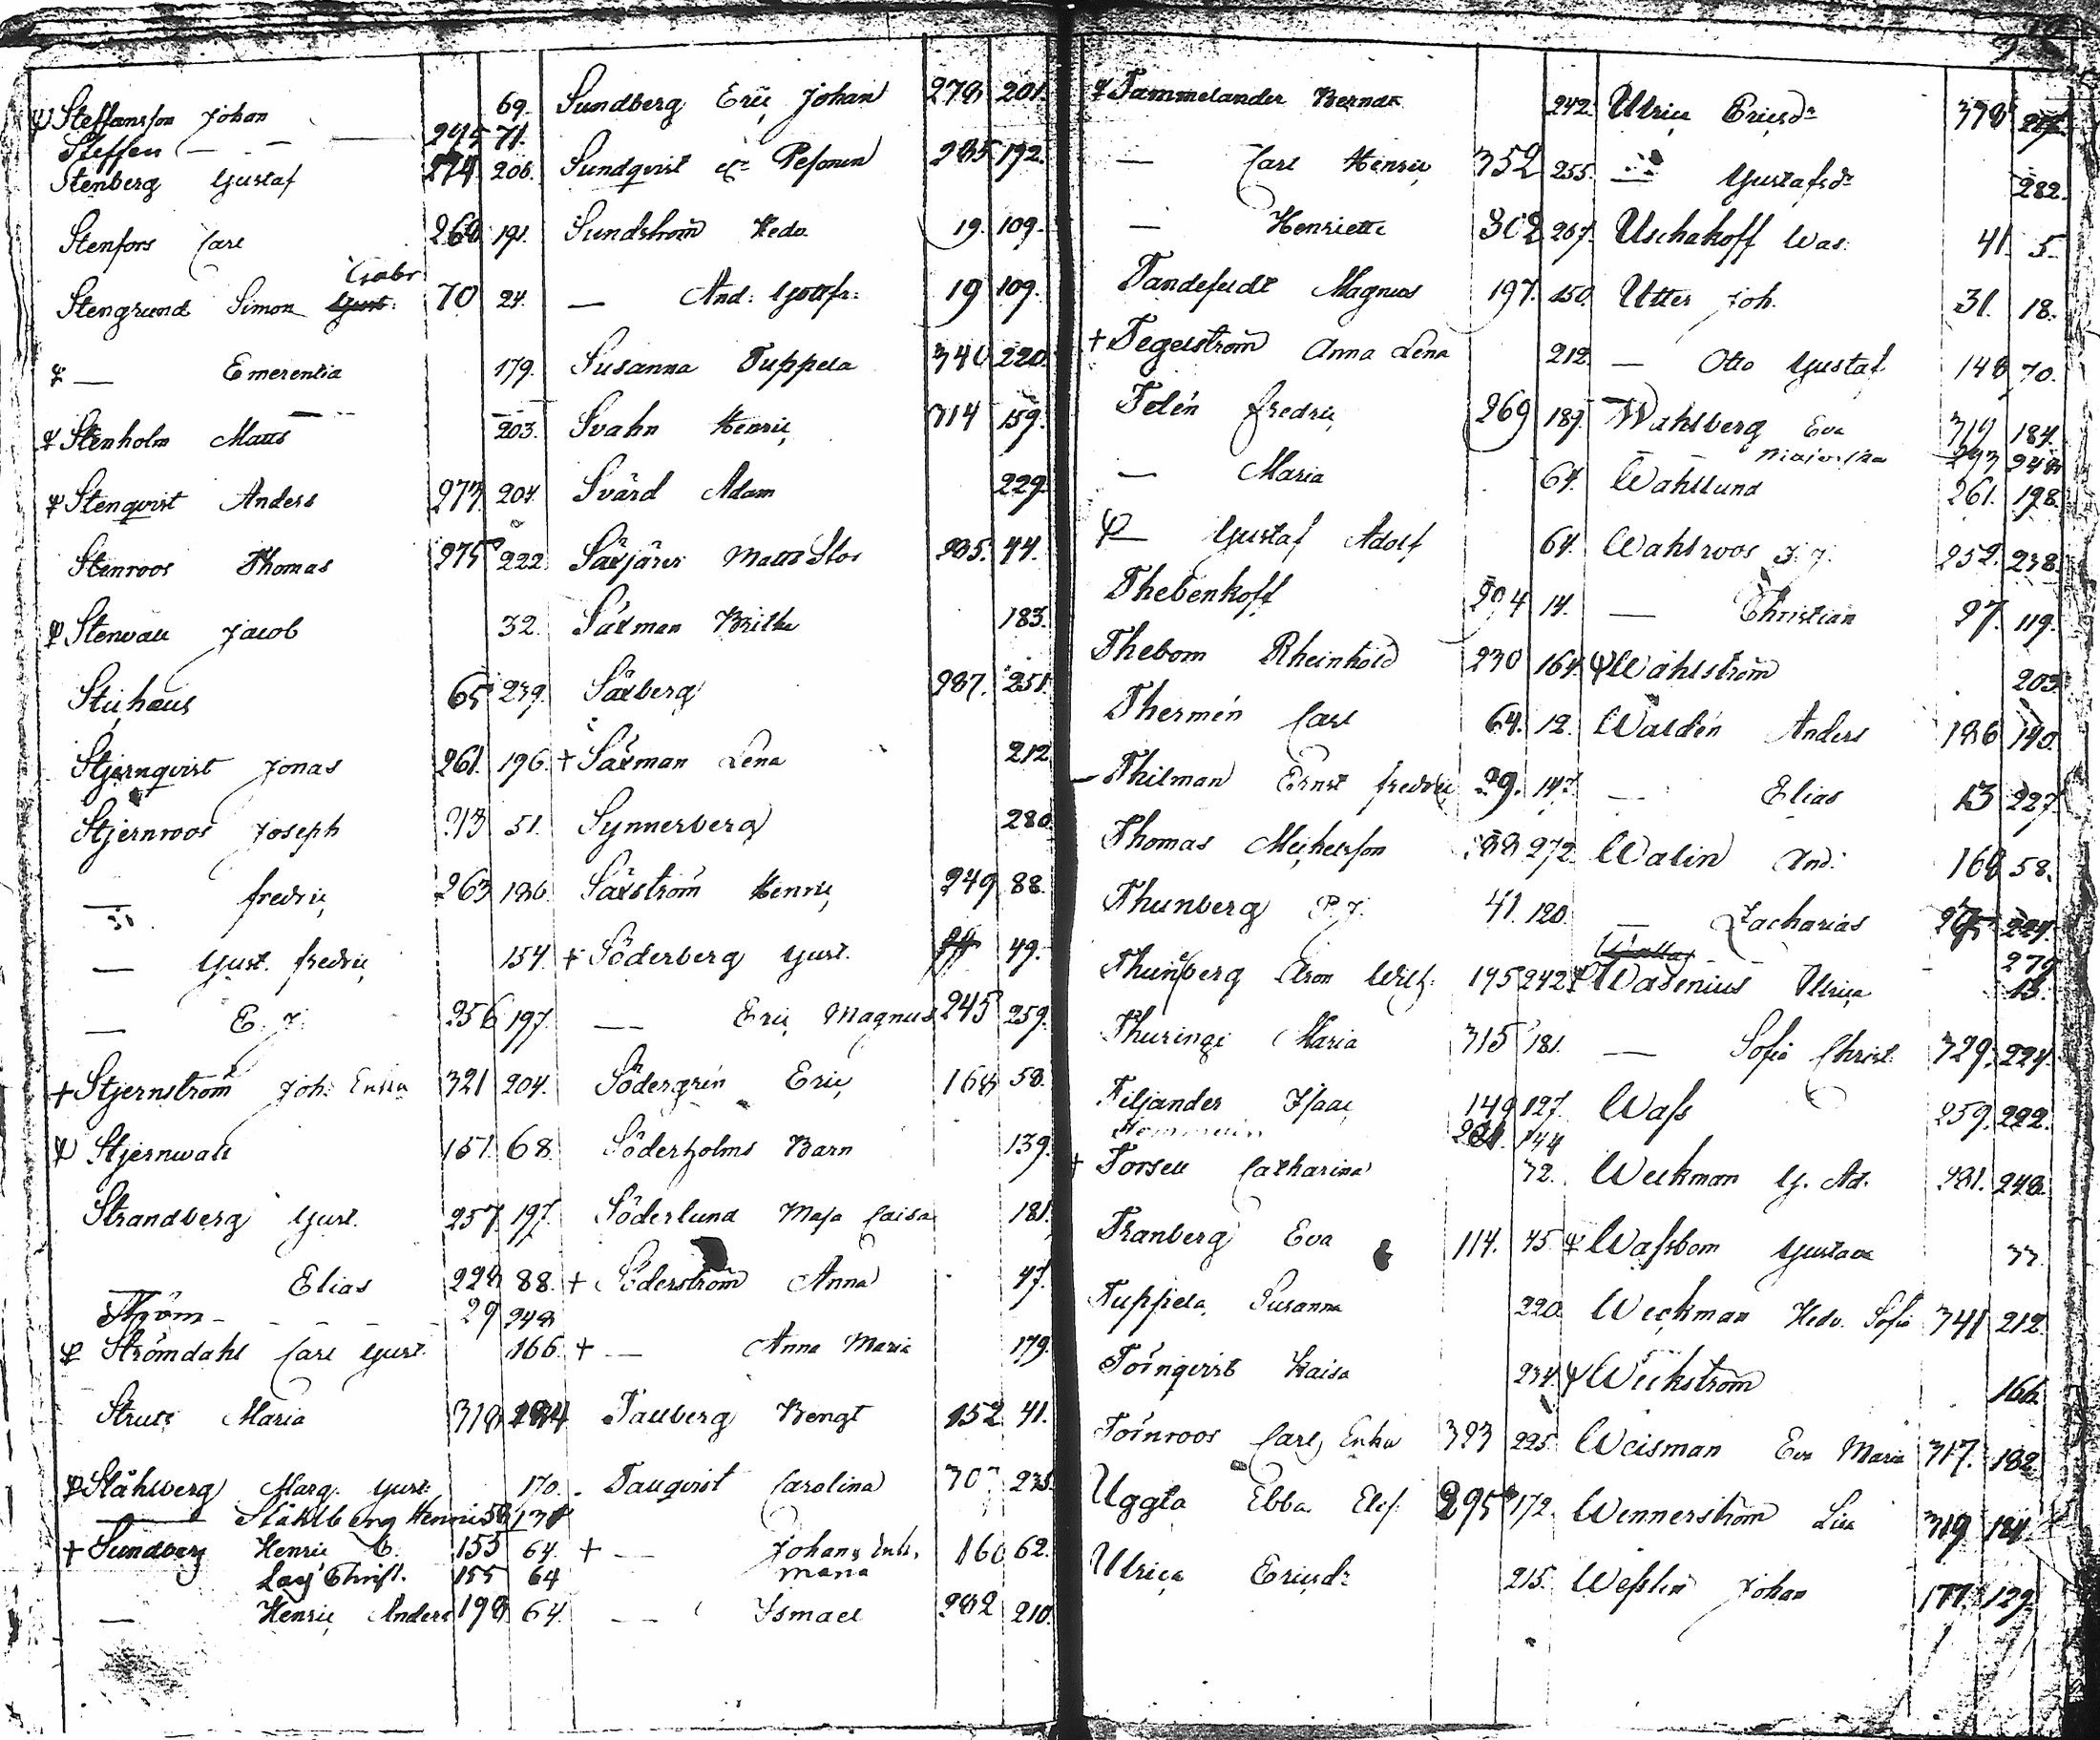 ψ Steffansson Johan 69.
Steffen — — — 245 71.
Stenberg Gustaf 274 206.
Stenfors Carl 260 191.
Gabr
Stengrund Simon Gust. 70 24.
ψ — Emerentia 179.
ψ Stenholm Matts 203.
ψ Stenqvist Anders 273 204.
Stenroos Thomas 275 222.
ψ Stenvall Jacob 32.
65 239.
Stjernqvist Jonas 261. 196.
Stjernroos Joseph 213 51.
— Fredric 263 186.
— Gust. Fredric 154.
— E. J. 256 197.
+ Stjernström Joh: Enka 321 204.
ψ Stjernvall 151. 68.
Strandberg Gust. 257 197.
— Elias 228 88.
Ström - - - - 29 248
ψ Strömdahl Carl Gust. 166.
Maria 318 184
ψ Ståhlberg Marg. Gust. 170.
— Ståhlberg Henric 58 138
+ Sundberg Henric C. 155 64.
Christ. 155 64
— Henric Anders 198 64.
Sundberg Eric Johan 278 201.
Sundqvist Pesonen 285 192.
Sundström Hedv. 19. 109.
— And: Gottfr: 19 109.
Susanna Tuppela 340 220.
Svahn Henric 314 159.
Svärd Adam 229.
Säxjärvi Matts Stor 235. 44.
Säxman Britha 183.
Säxberg 287. 251.
+ Säxman Lena 212
Synnerberg 280.
Säxström Henric 249 88.
+ Söderberg Gust. 49.
— Eric Magnus 245 259.
Södergrén Eric 168 58.
Söderholms Barn 139.
Söderlund Maja Caisa 181.
+ Söderström Anna 47.
+ — Anna Maria 179.
Tallberg Bengt 152 41.
Tallqvist Carolina 307 235.
+ — Johans Enk. Maria 160 62.
— Ismael 282 210.
ψ Tammelander Berndt 242.
— Carl Henric 352 255.
— Henriette 302 267.
Tandefeldt Magnus 197. 150.
+ Tegelström Anna Lena 212.
Telén Fredric 269 189.
— Maria 64.
ψ — Gustaf Adolf 64.
Thebenkoff 204 14.
Thebom Rheinhold 230 164.
Thermén Carl 64. 12.
Thilman Ernst Fredric 29. 147.
Thomas Michelsson 188 272.
Thunberg P. J. 41. 120.
Thunberg Aron Wilh. 195 242.
Thuringi Maria 315 181.
Tiljander Isaac 149 127.
144
+ Torsell Catharina 72.
Tranberg Eva 114. 45
Tuppela Susanna 220.
Törnqvist Kaisa 234.
Törnroos Carl, Enka 323 225.
Uggla Ebba Elis. 295 172.
Ulrica Ericsdr 215.
Ulrica Ericsdr 378
— Gustafsdr 282.
Uschakoff Was. 41. 5.
Utter Joh. 31. 18.
— Otto Gustaf 148 70.
Wahlberg Eva 319 184.
Majorska 293 248
Wahllund 261. 198.
Wahlroos J. J. 252. 238.
— Christian 97. 119.
ψ Wahlström 203.
Waldén Anders 186 140.
— Elias 13 227.
Walin And. 168 58.
— Zacharias 227.
279
ψ Walenius Ulrica 13.
— Sofia Christ. 329. 224.
Wass 259. 222.
Weckman G. Ad. 281. 248.
ψ Wassbom Gustava 33.
Weckman Hedv. Sofia 341 212.
ψ Weckström 166.
Weisman Eva Maria 317. 182.
Wennerström Lisa 319 184.
Wesslin Johan 177. 129.